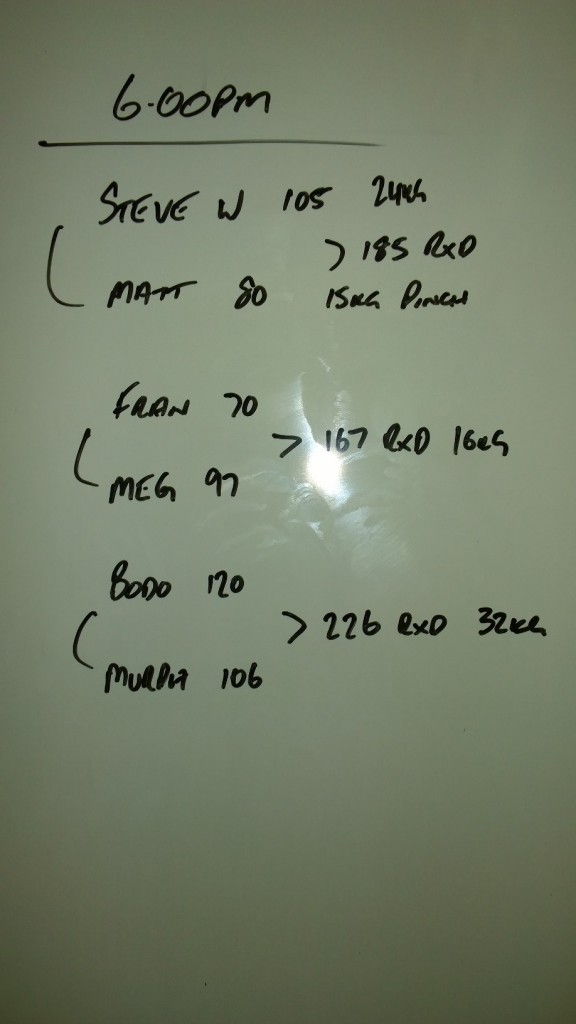 6.00PM
STEVE W 105 24KG
> 185 RXD
MATT 80 15KG PINCH
FRAN 70
> 167 RXD 16KG
MEG 97
BODO 120
> 226 RXD 32KG
MURPH 106